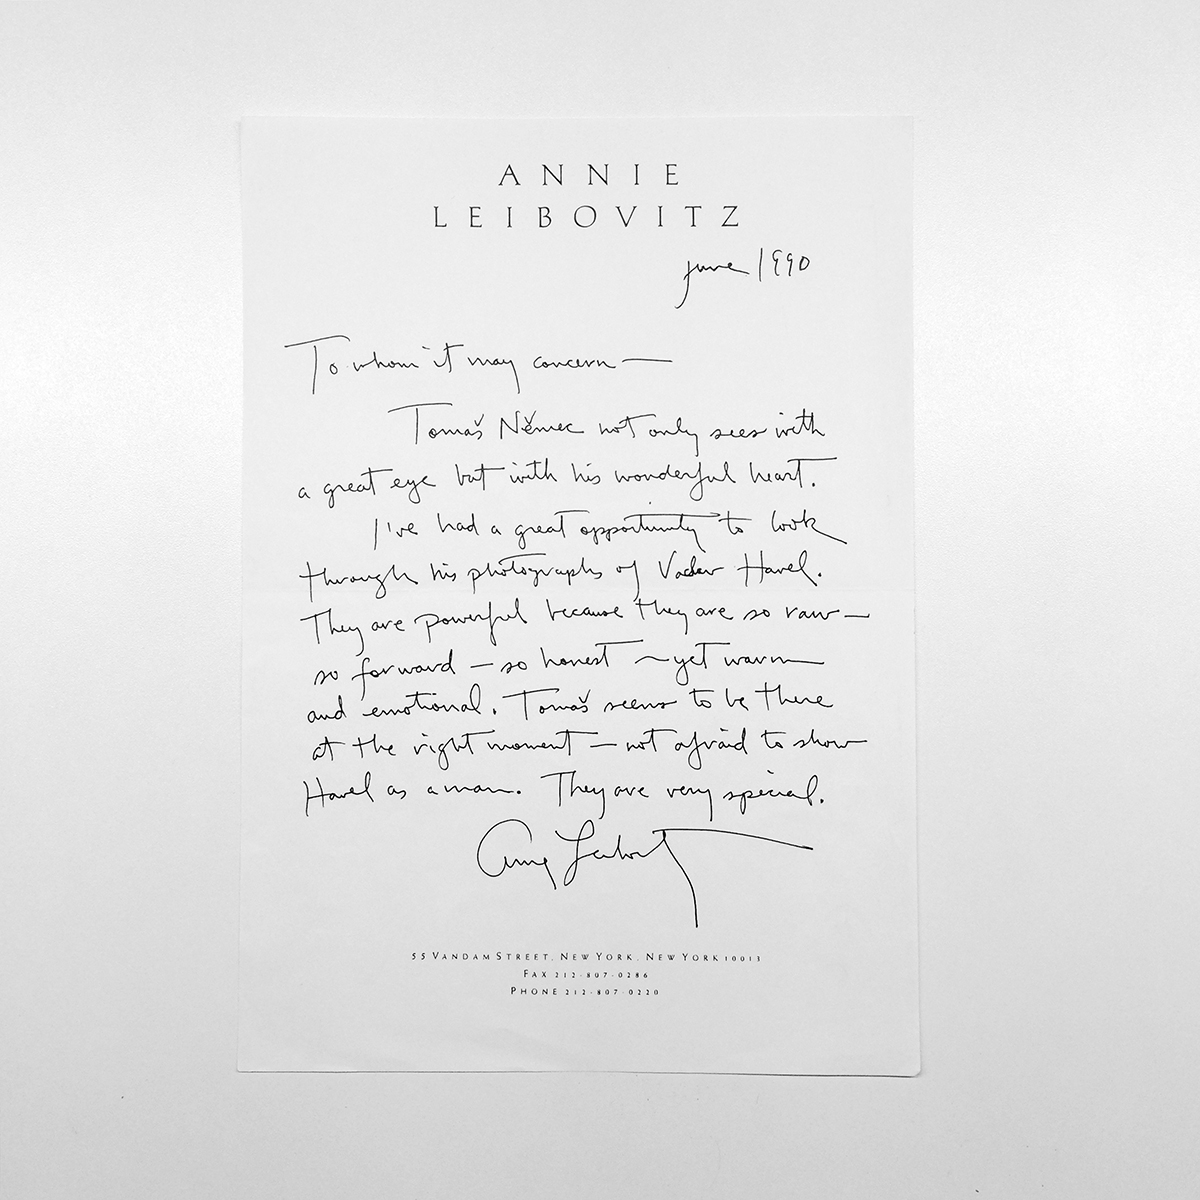 ANNIE
LEIBOVITZ
June 1990
To whom it may concern —
Tomaš Němec not only sees with
a great eye but with his wonderful heart.
I've had a great opportunity to look
through his photographs of Vaclav Havel.
They are powerful because they are so raw —
so forward — so honest — yet warm
and emotional. Tomaš seems to be there
at the right moment — not afraid to show
Havel as a man. They are very special.
Annie Leibovitz
55 VANDAM STREET, NEW YORK, NEW YORK 10013
FAX 212-807-0286
PHONE 212-807-0220